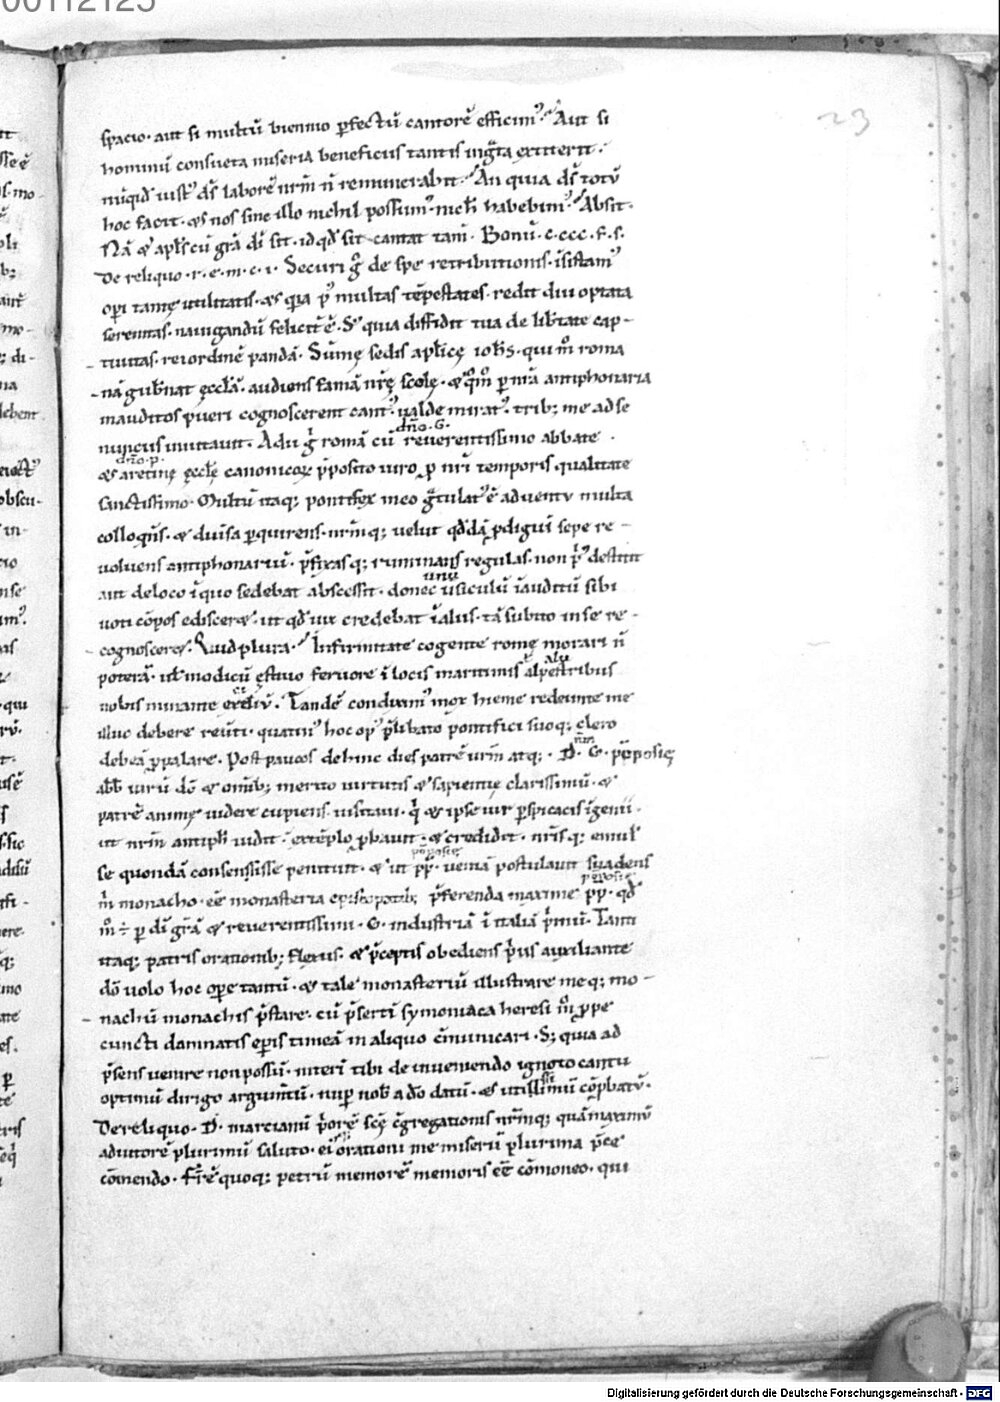 00112125
23
spacio. aut si multū biennio ꝑfectū cantorē efficim᾽. Aut si
hominū consueta miseria beneficus tantis ingͣta extiterit.
nūqͥd iust᾽ dš laborē nrm̄ n̄ remunerabit. An quia dš totū
hoc facit. & nos sine illo nichil possum᾽. nich̄ habebim᾽. Absit.
Nā & aplš cū grā dī sit. id qd̄ sit cantat tam̄. Bonū. c. ccc. f. s.
De reliquo. r. e. m. c. i. Securi gͦ de spe retributionis. īsistam᾽
opi tantę utilitatis. & qia pͦ multas tēpestates. redit diu optata
serenitas. nauigandū feliciť ē. S; quia diffidit tua de libtate cap-
tiuitas. rei ordinē pandā. Sūmę sedis aplicę ioh̄s. qui m̊ roma
nā gub̄nat ęccłā. audiens famā nrę scolę. & qͦm̊ ꝑ nrā antiphonaria
inauditos pueri cognoscerent cant᾽. ualde mirat᾽. trib; me ad se
nuncius inuitauit. Adii gͦ romā cū dño. G. reuerentissimo abbate.
& dño. p. aretinę ęccłę canonicoꝝ p̄posito uiro ꝓ nrī temporis qualitate
sanctissimo. Multū itaq; pontifex meo gͣtulat᾽ ē aduentu multa
colloqns. & diuisa ꝑquirens. nrm̄q; uelut qd̄dā ꝓdigiū sepe re-
uoluens antiphonariū. p̄fixasq; ruminans regulas. non pͥ᾽ destitit
aut de loco ī quo sedebat abscessit. donec unū ūsiculū īauditū sibi
uoti cōpos edisceret. ut qd̄ uix credebat ī alus. tā subito in se re-
cognosceret. Quid plura. Infirmitate cogente romę morari n̄
poterā. uł modicū ęstiuo feruore ī locis maritimis ł alpestribus
nobis minante excidiū. Tandē condixim᾽ mox hieme redeunte me
illuc debere reūti. quatin᾽ hoc op᾽ p̄libato pontifici suoq; clero
debeā ꝓpalare. Post paucos dehinc dies patrē urm̄ atq; D. G. pōposię
abb̄ uirū dō & omīb; merito uirtutis & sapientię clarissimū. &
patrē animę uidere cupiens uisitaui. qͥ & ipse uir ꝑspicacis īgenii.
ut nrm̄ antiph̄ uidit. extēplo ꝓbauit. & credidit. nrisq; emul
se quondā consensisse penituit. & ut pp̄. pōposię ueniā postulauit suadens
m̊ monacho. eē monasteria episcopatib; p̄ferenda maxime pp̄. pōposię qd̄
m̊ ÷ ꝑ dī grā & reuerentissimi. G. industriā ī italiā pͥmū. Tanti
itaq; patris orationib; flexus. & p̄ceptis obediens pͥus auxiliante
dō uolo hoc oꝑe tantū. & tale monasteriū illustrare meq; mo-
nachū monachis p̄stare. cū p̄sertī symoniaca heresi m̊ ꝓpe
cuncti damnatis ep̄is timeā in aliquo cōmunicari. S; quia ad
p̄sens uenire non possū. interī tibi de inueniendo ignoto cantu
optimū dirigo argumtū. nuꝑ nob̄ a dō datū. & utilissimū cōpbatū.
De reliquo. D. marcianū pͥorē scę cg̅regationis nrm̄q; quā maximū
adiutorē plurimū saluto. eī orationi me miserū plurima p̄ce
cōmendo. frēꝫ quoq; petrū memorē memoris eē cōmoneo. qui
Digitalisierung gefördert durch die Deutsche Forschungsgemeinschaft - DFG